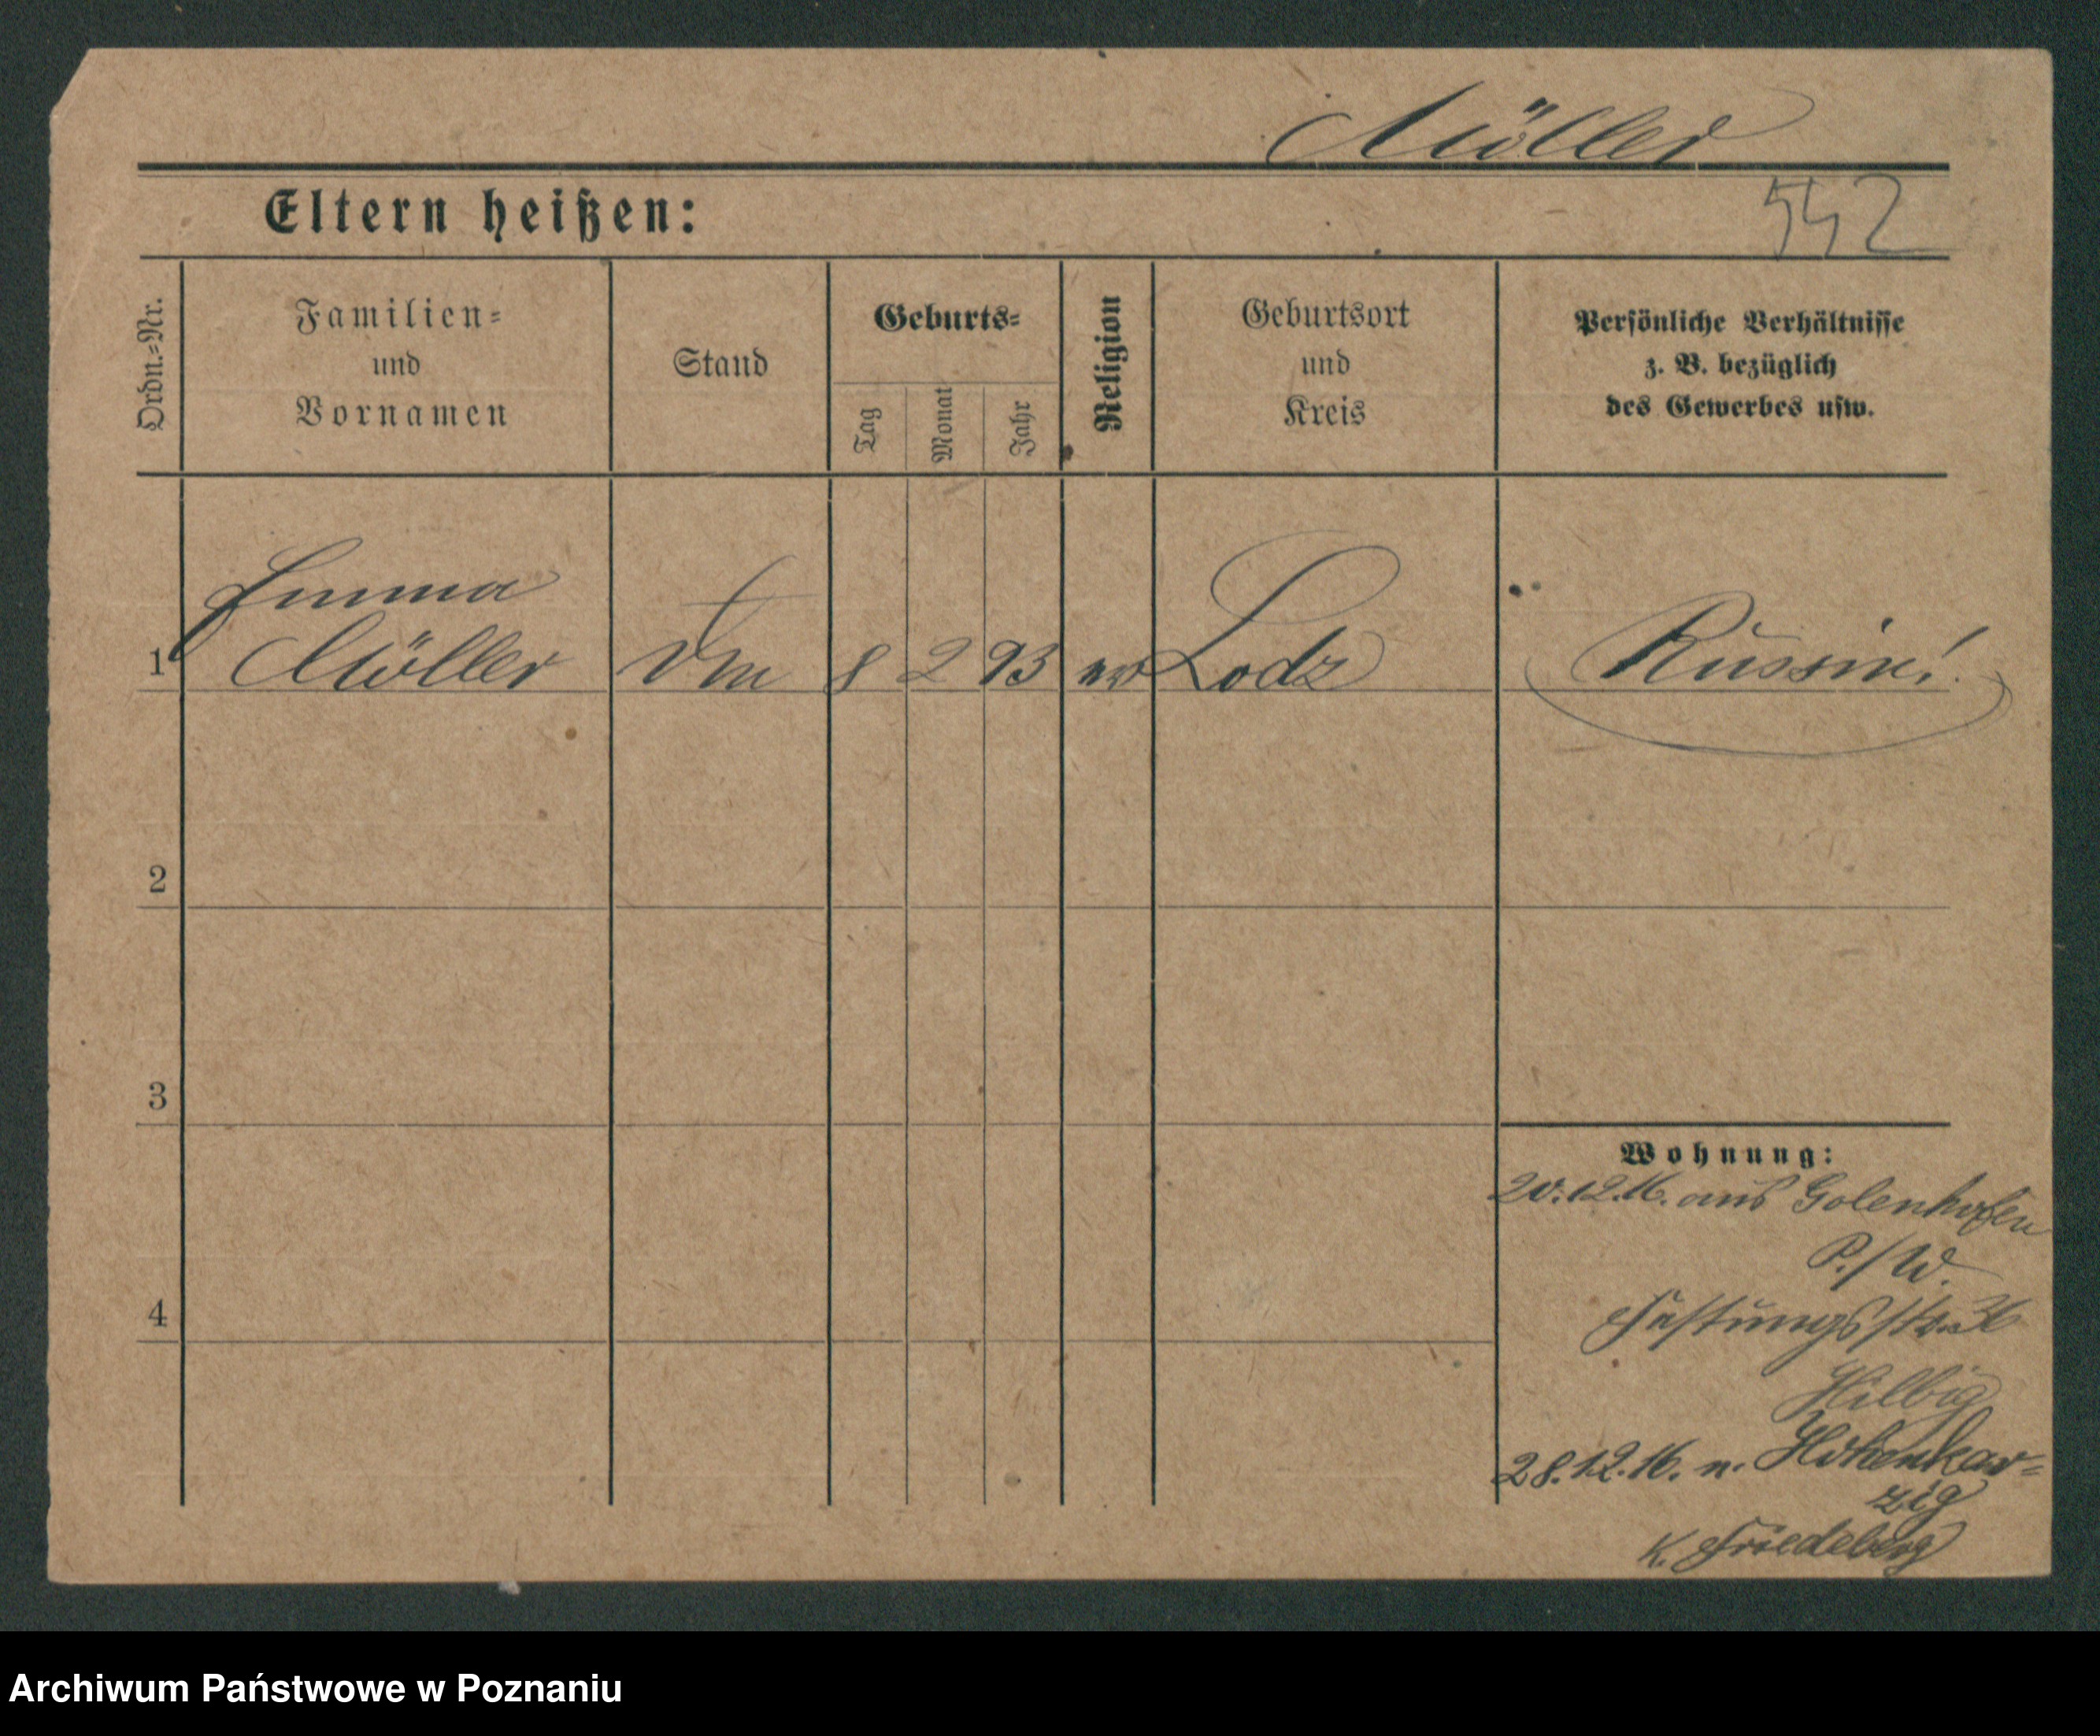 Möller
Eltern heißen:
542
Ordn.-Nr.
Familien-
und
Vornamen
Stand
Geburts-
Tag
Monat
Jahr
Religion
Geburtsort
und
Kreis
Persönliche Verhältnisse
z. B. bezüglich
des Gewerbes usw.
Emma
1 Möller 8 2 93 Lodz Russin!
2
3
4
Wohnung:
20.12.16. aus Golenhofen
P./W.
Festungsstr. 36
Hilbig
28.12.16. n. Hohenkar=
zig
K. Friedeberg
Archiwum Państwowe w Poznaniu